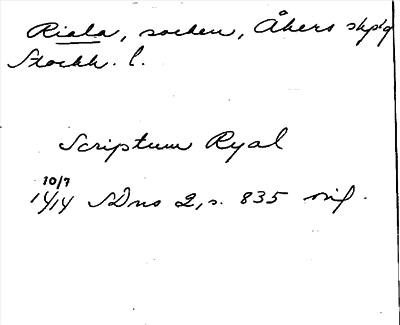 Riala, socken, Åkers skplg
Stockh. l.
Scriptum Ryal
10/7
1414 SDns 2, s. 835 orig.